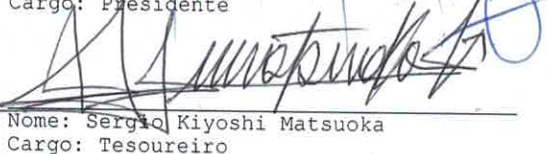 Cargo: Presidente
Nome: Sergio Kiyoshi Matsuoka
Cargo: Tesoureiro